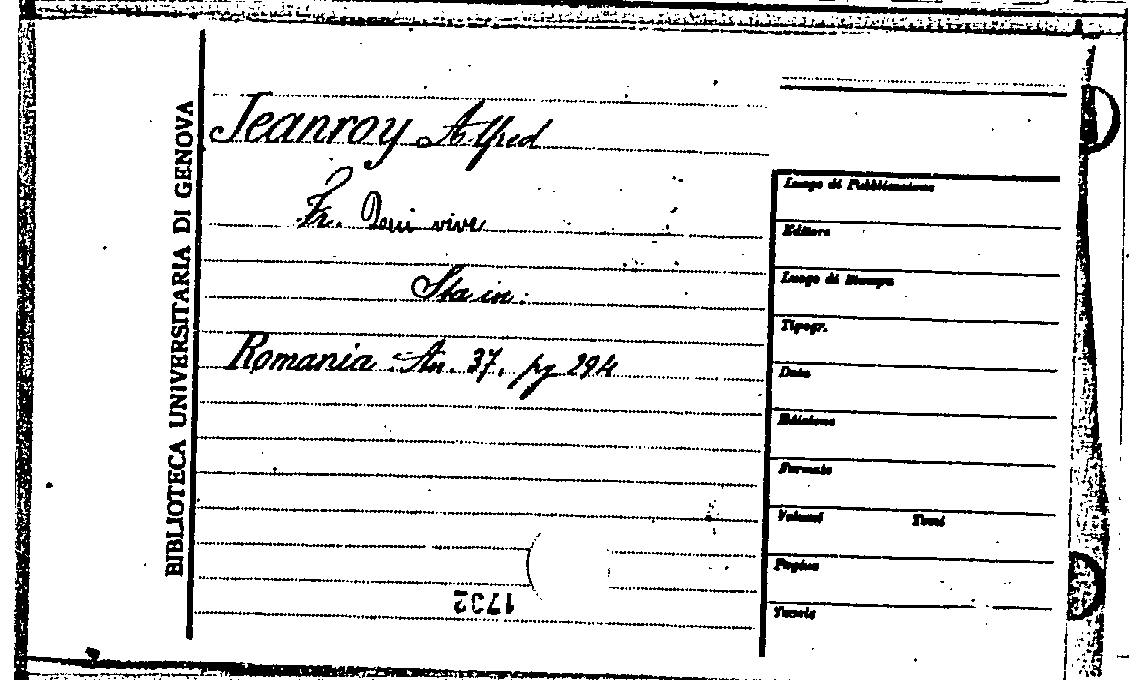 BIBLIOTECA UNIVERSITARIA DI GENOVA
Jeanroy Alfred
Fr. Doni vive
Sta in:
Romania. An. 37. pg 294
Luogo di Pubblicazione
Editore
Luogo di Stampa
Tipogr.
Data
Edizione
Formato
Volumi Tomi
Pagine
Tavole
1732